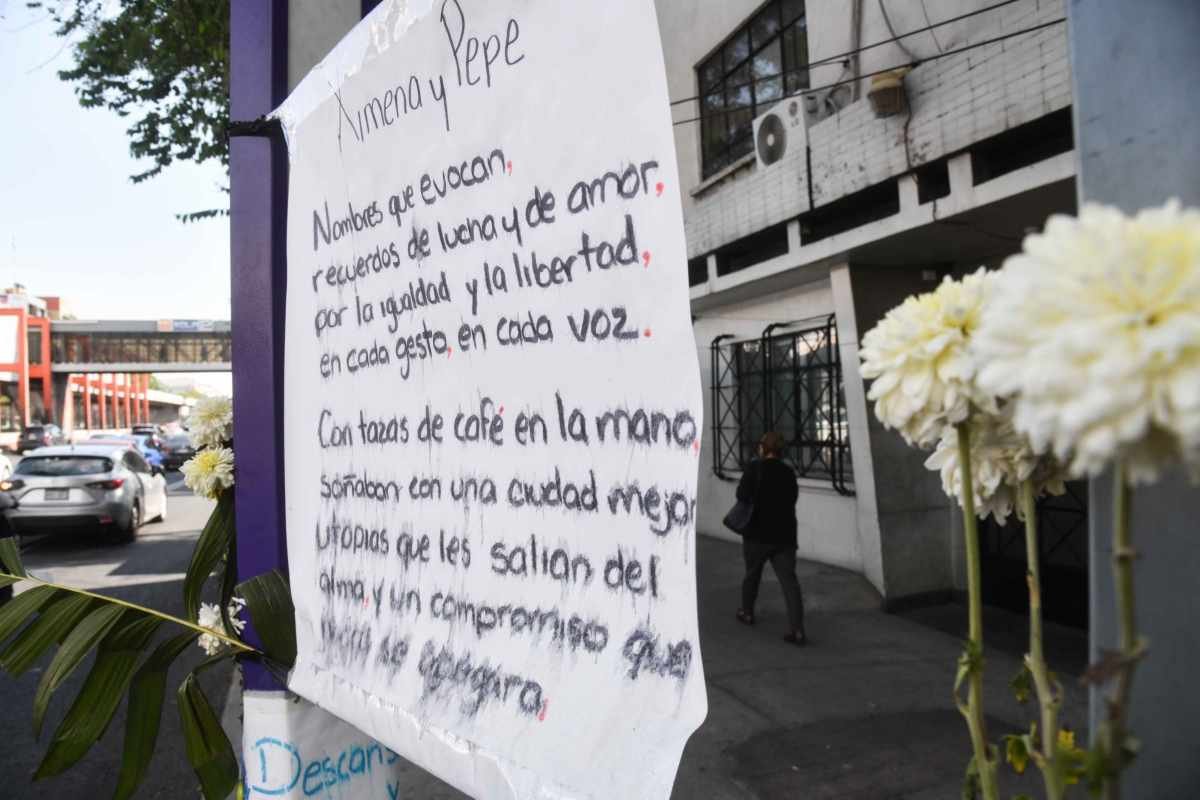 Ximena y Pepe
Nombres que evocan,
recuerdos de lucha y de amor,
por la igualdad y la libertad,
en cada gesto, en cada voz.
Con tazas de café en la mano,
soñaban con una ciudad mejor
utopías que les salían del
alma, y un compromiso que
nunca se apagara.
Descans
y